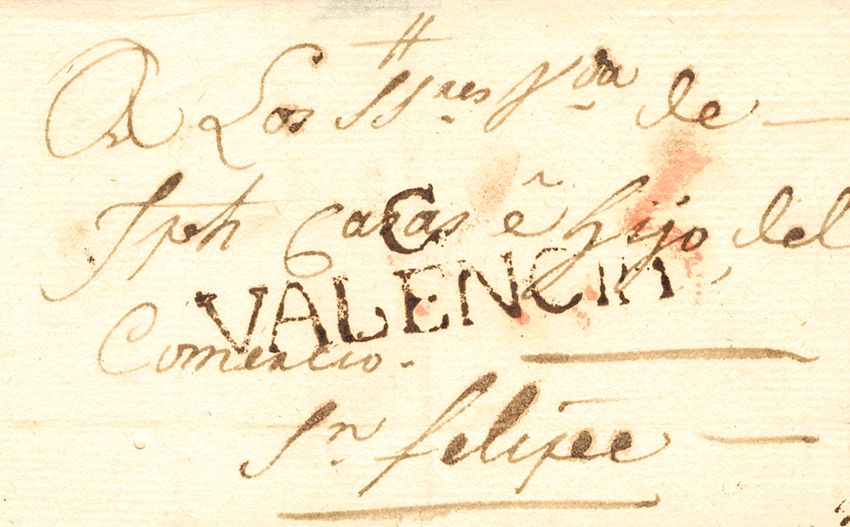 A Los SSres Vda de
Jph Casas é Hijo, del
C
VALENCIA
Comercio.
Sn felipee